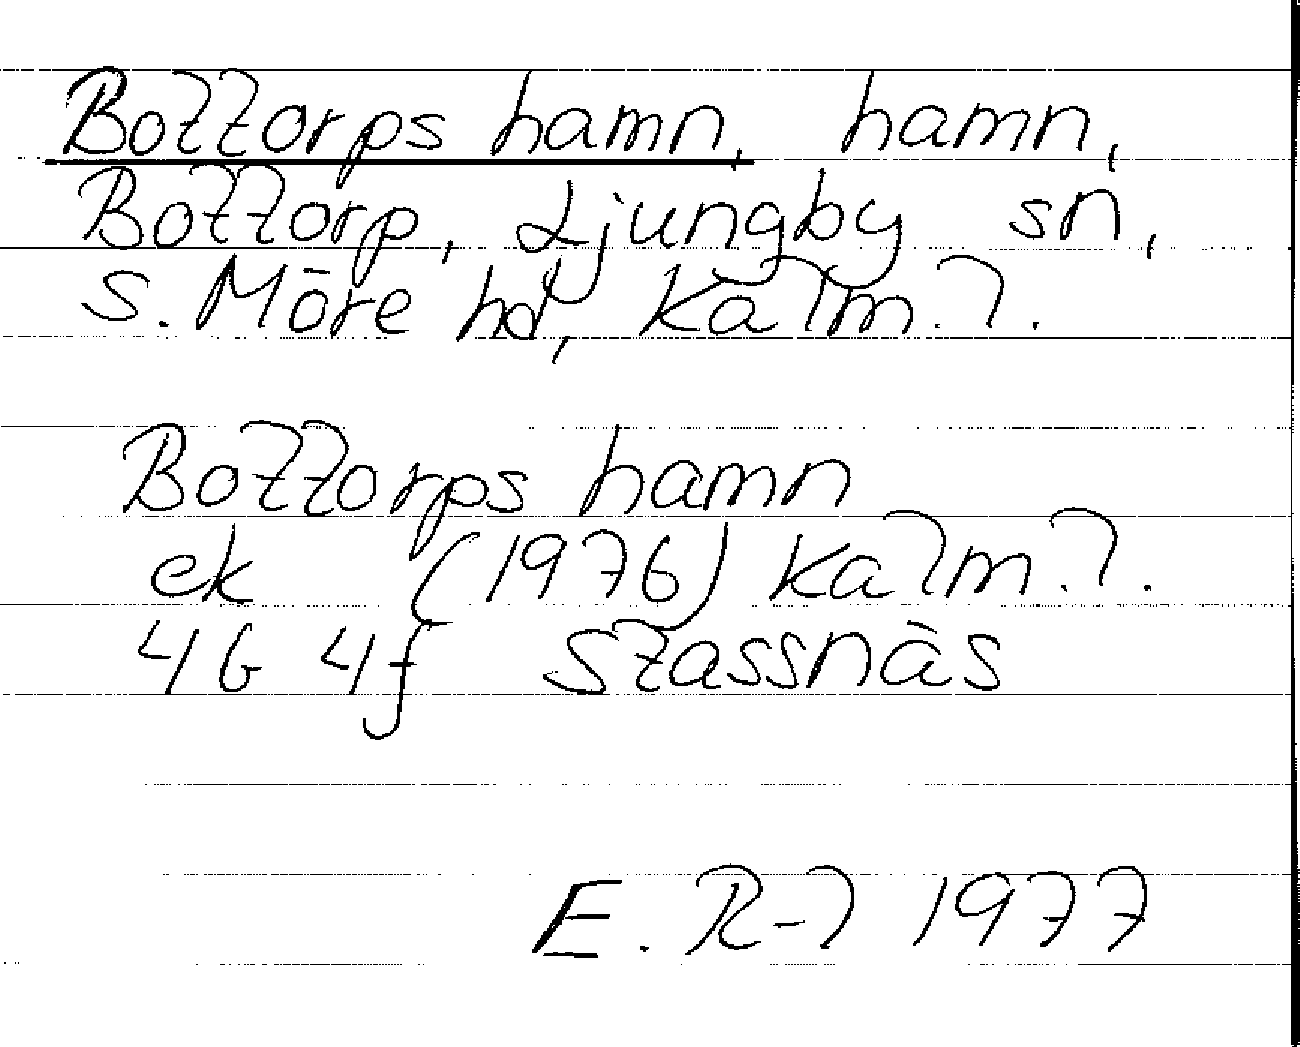 Bottorps hamn, hamn,
Bottorp, Ljungby sn,
S. Möre hd, Kalm. l.
Bottorps hamn
ek (1976) Kalm. l.
4G 4f Stassnäs
E. R-l 1977